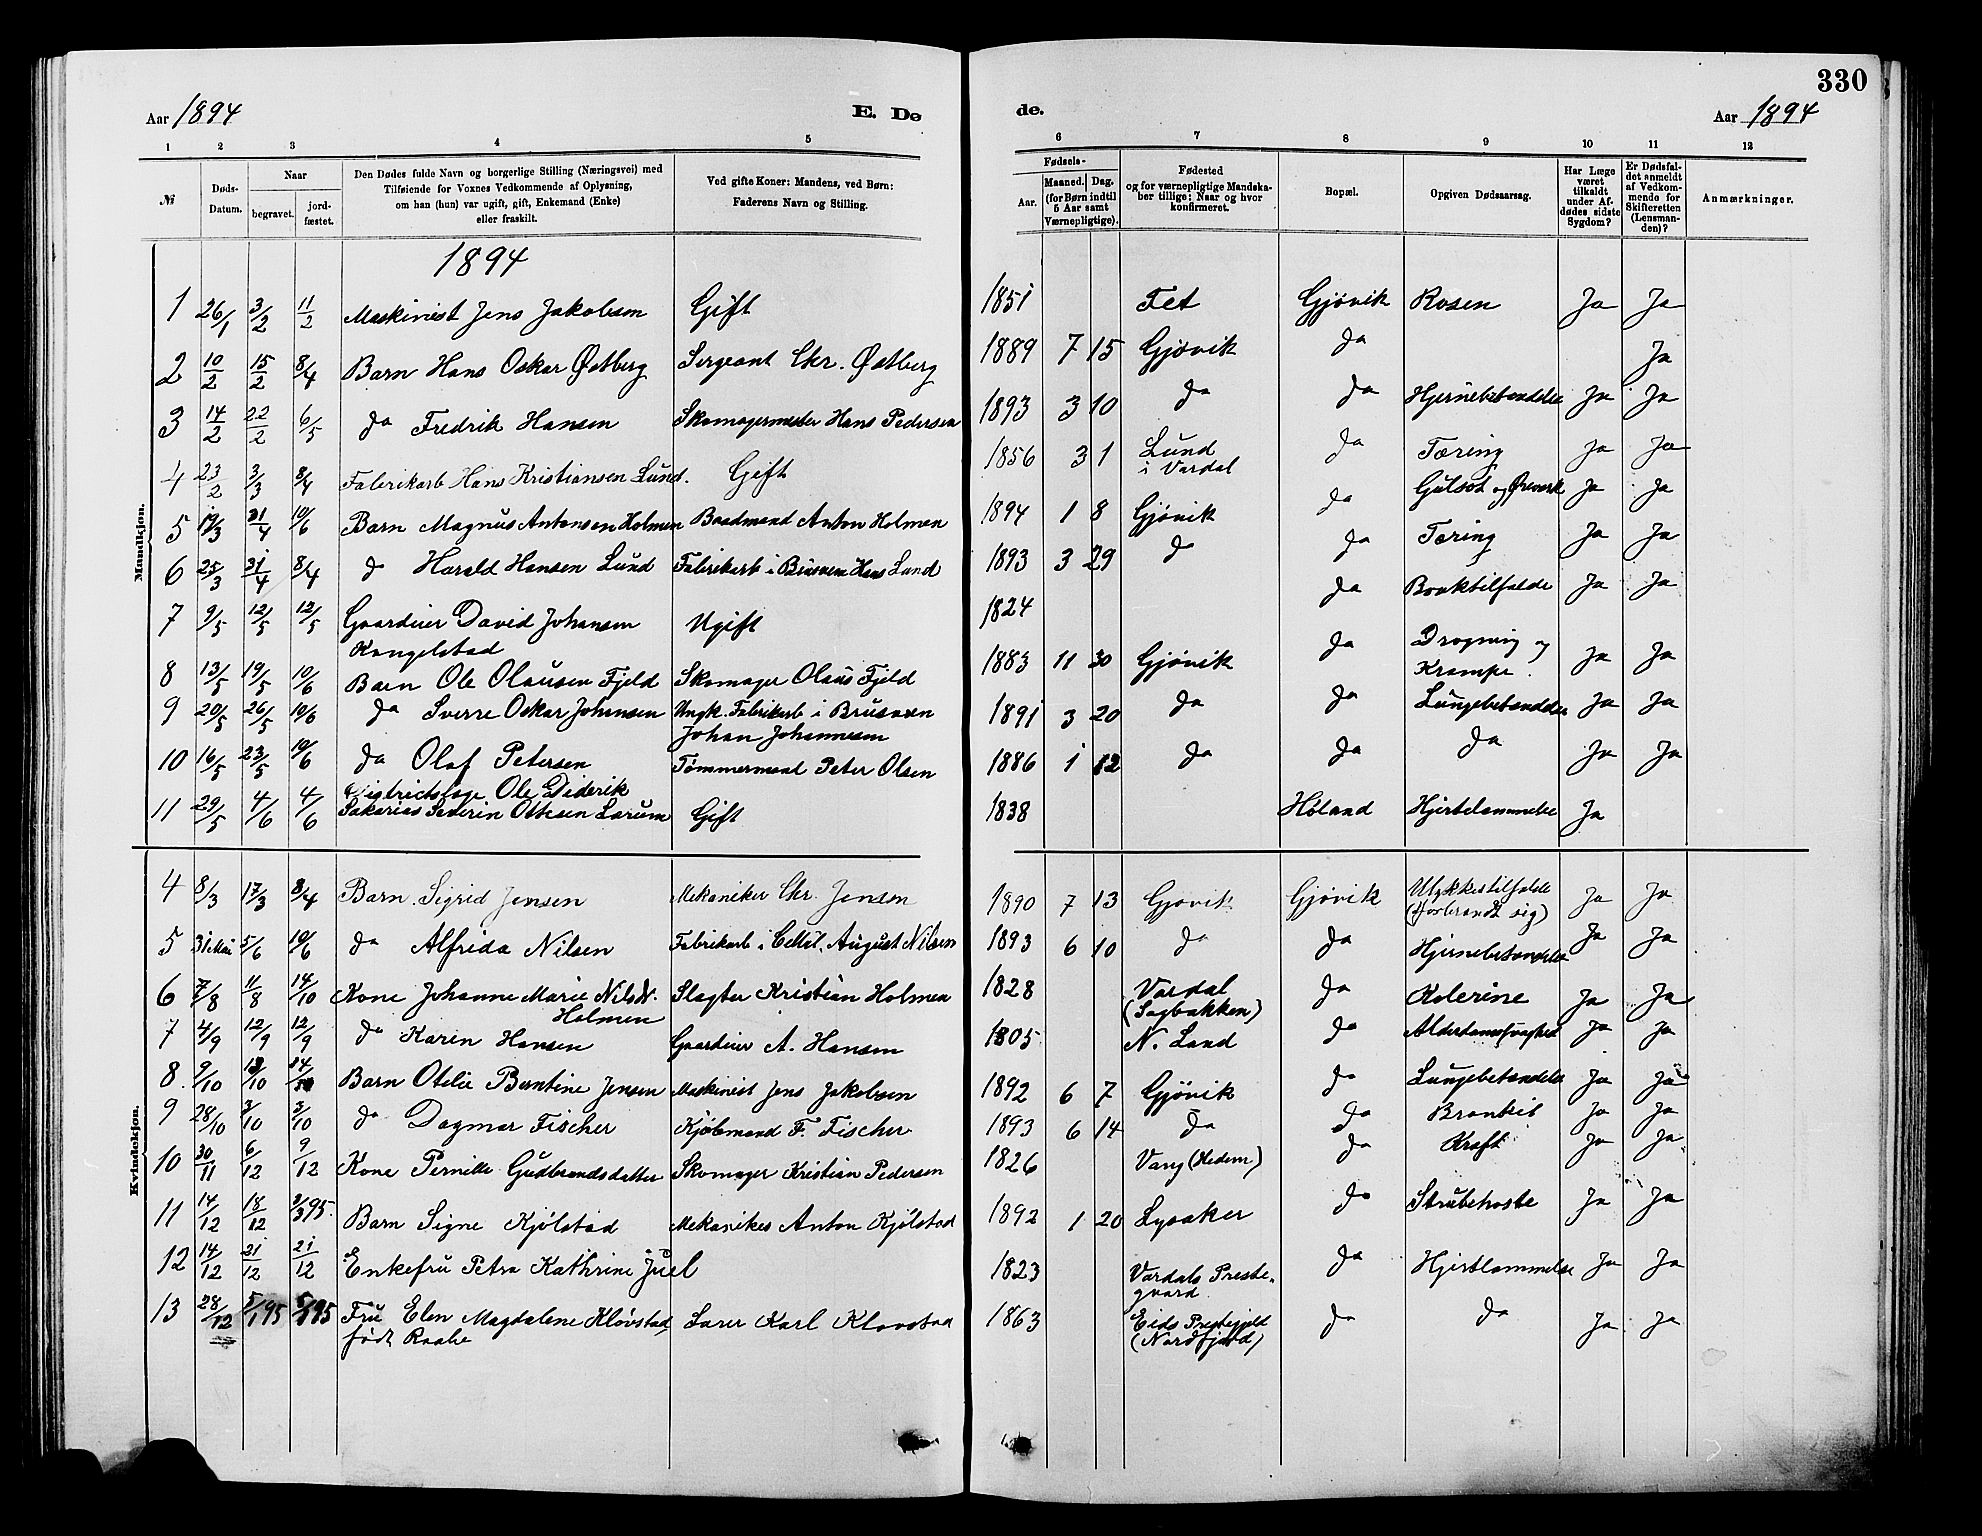 330
Aar 1894
E. De
de.
Aar 1894
1 2 3 4 5 6 7 8 9 10 11 12
№
Døds-Datum.
Naar
begravet.
jordfæstet.
Den Dødes fulde Navn og borgerlige Stilling (Næringsvei) med
Tilføiende for Voxnes Vedkommende af Oplysning,
om han (hun) var ugift, gift, Enkemand (Enke)
eller fraskilt.
Ved gifte Koner: Mandens, ved Børn:
Faderens Navn og Stilling.
Fødsels-
Aar.
Maaned. Dag.
(for Børn indtil
5 Aar samt
Værnepligtige).
Fødested
og for værnepligtige Mandska-
ber tillige: Naar og hvor
konfirmeret.
Bopæl.
Opgiven Dødsaarsag.
Har Læge
været
tilkaldt
under Af-
dødes sidste
Sygdom?
Er Dødsfal-
det anmeldt
af Vedkom-
mende for
Skifteretten
(Lensman-
den)?
Anmærkninger.
Mandkjøn.
1894
1 26/1 3/2 11/2 Maskinist Jens Jakobsen Gift 1851 Fet Gjøvik Rosen Ja Ja
2 10/2 15/2 8/4 Barn Hans Oskar Østberg Sergeant Chr. Østberg 1889 7 15 Gjøvik do Ja
3 14/2 22/2 6/5 do Fredrik Hansen Skomagermester Hans Pedersen 1893 3 10 do do Hjernebetændelse Ja Ja
4 23/2 3/3 8/4 Fabrikarb Hans Kristiansen Lund. Gift 1856 3 1 Lund i Vardal do Tæring Ja Ja
5 19/3 21/4 10/6 Barn Magnus Antonsen Holmen Baadmand Anton Holmen 1894 1 8 Gjøvik do Gulsot og Øreverk Ja Ja
6 25/3 21/4 8/4 do Harald Hansen Lund Fabrikarb i Brusven Hans Lund 1893 3 29 do do Tæring Ja Ja
7 9/5 12/5 12/5 Gaardeier David Johansen Kongelstad Ugift 1824 do Broktilfælde Ja Ja
8 13/5 19/5 10/6 Barn Ole Olausen Fjeld Skomager Olaus Fjeld 1883 11 30 Gjøvik do Drogning og Krampe. Ja Ja
9 20/5 26/5 10/6 do Sverre Oskar Johansen Ungk. Fabrikarb i Brusven Johan Johannesen 1891 3 20 do do Lungebetændelse Ja Ja
10 16/5 23/5 10/6 do Olaf Petersen Tømmermand Peter Olsen 1886 1 12 do do do Ja Ja
11 29/5 4/6 4/6 Distriktslæge Ole Diderik Sakarias Severin Ottesen Larum Gift 1838 Høland Hjertelammelse Ja
Kvindekjøn.
4 8/3 17/3 8/4 Barn Sigrid Jensen Mekaniker Chr. Jensen 1890 7 13 Gjøvik Gjøvik Ulykkestilfælde (forbrandt sig) Ja Ja
5 31 Mai 5/6 10/6 do Alfrida Nilsen Fabrikarb i Cellul. August Nilsen 1893 6 10 do do Hjernebetændelse Ja Ja
6 7/8 11/8 14/10 Kone Johanne Marie Nilsd. Holmen Slagter Kristian Holmen 1828 Vardal (Sagbakken) do Kolerine Ja Ja
7 4/9 12/9 12/9 do Karin Hansen Gaardeier A. Hansen 1805 N. Land do Alderdomssvaghed Ja Ja
8 9/10 13/10 14/10 Barn Otelie Berntine Jensen Maskinist Jens Jakobsen 1892 6 7 Gjøvik do Lungebetændelse Ja Ja
9 28/10 3/10 3/10 do Dagmar Fischer Kjøbmand F. Fischer 1893 6 14 do do Bronkit Ja Ja
10 30/11 6/12 9/12 Kone Pernille Gudbrandsdatter Skomager Kristian Pedersen 1826 Vang (Hedem) do Kræft Ja Ja
11 14/12 18/12 3/3 95. Barn Signe Kjølstad Mekaniker Anton Kjølstad 1892 1 20 Lysaker do Strubehoste Ja Ja
12 14/12 21/12 21/12 Enkefru Petra Kathrine Juel 1823 Vardals Prestegaard. do Hjertlammelse Ja Ja
13 28/12 5/1 95 5/1 95 Fru Elen Magdalene Kløvstad, født Raabe Lærer Karl Kløvstad 1863 Eids Prestegjeld (Nordfjord) do do Ja Ja